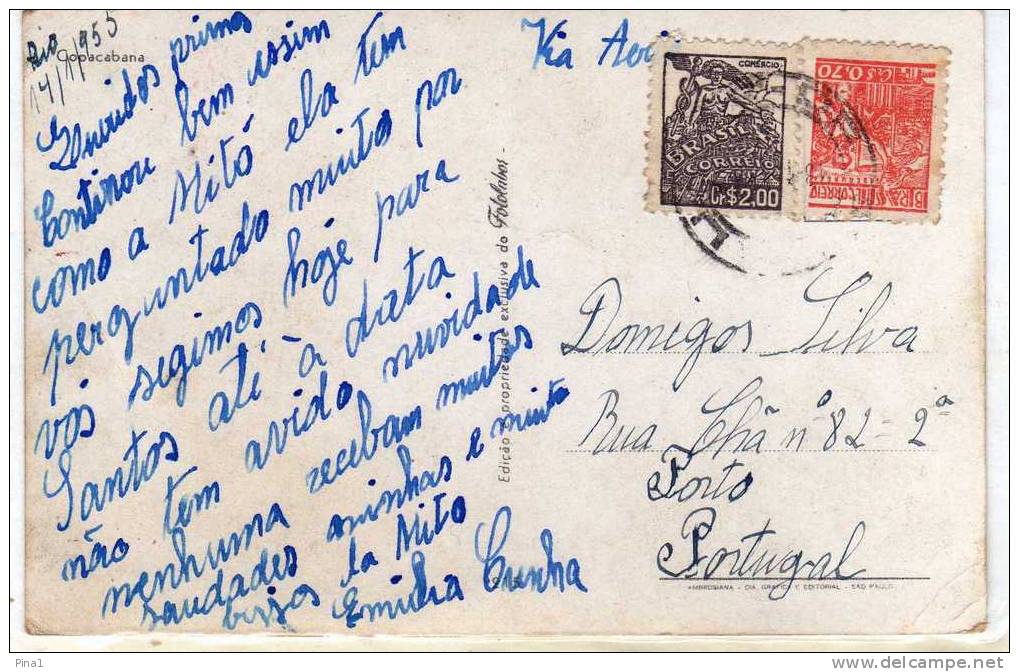 Rio
14/1/1955
Copacabana
Queridos primos
Continou bem assim
como a Mitó ela tem
perguntado muito por
vós segimos hoje para
Santos até à data
não tem avido nuvidade
nenhuma recebam muitos
saudades minhas e muita
bijos da Mitó
Emilia Cunha
Via Aeria
COMÉRCIO
BRASIL
CORREIO
Cr$2,00
Cr$ 0,70
BRASIL CORREIO
Edição e propriedade exclusiva do Fotolabor -
Domigos Silva
Rua Chã nº 82=2ª
Porto
Portugal
AMBROSIANA - CIA. GRAFICA E EDITORIAL - SÃO PAULO
Pina1
www.delcampe.net